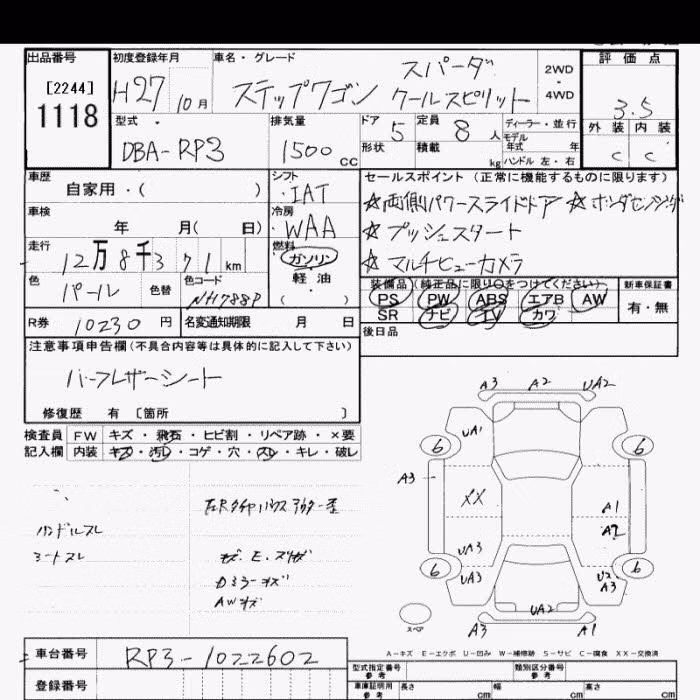 出品番号
[2244]
1118
初度登録年月
H27 10月
車名・グレード
ステップワゴン スパーダ
クールスピリット
2WD
・
4WD
評価点
3.5
外装 内装
C C
型式
DBA-RP3
排気量
1500 cc
ドア 5
形状
定員 8 人
積載 kg
ディーラー・並行
モデル
年式 年
ハンドル 左・右
車歴
自家用・( )
シフト
IAT
車検
年 月( 日)
冷房
WAA
走行
12万8千371km
燃料
ガソリン
軽油
・
( )
色
パール
色替
色コード
NH788P
R券 10230 円
名変通知期限 月 日
セールスポイント(正常に機能するものに限ります)
☆両側パワースライドドア ☆ホンダセンシング
☆プッシュスタート
☆マルチビューカメラ
装備品(純正品に限り〇をつけてください)
PS PW ABS エアB AW
SR ナビ TV カワ
新車保証書
有・無
後日品
注意事項申告欄(不具合内容等は具体的に記入して下さい)
ハーフレザーシート
修復歴 有 [箇所 ]
検査員 FW キズ・飛石・ヒビ割・リペア跡・×要
記入欄 内装 キズ・汚レ・コゲ・穴・スレ・キレ・破レ
ハンドルスレ
シートスレ
左Rタイヤハウスアウター歪
キズ.E.スリキズ
Dミラーキズ
AWキズ
A3 A2 UA2
UA1
6 6
A3
XX
A1
A2
UA3
UA3
6 6
A3
UA2
A3 A1
スペア
A-キズ E-エクボ U-凹み W-補修跡 S-サビ C-腐食 XX-交換済
車台番号 RP3-1022602
登録番号
型式指定番号
参考
類別区分番号
参考
車庫証明用
参考
長さ cm
幅 cm
高さ cm